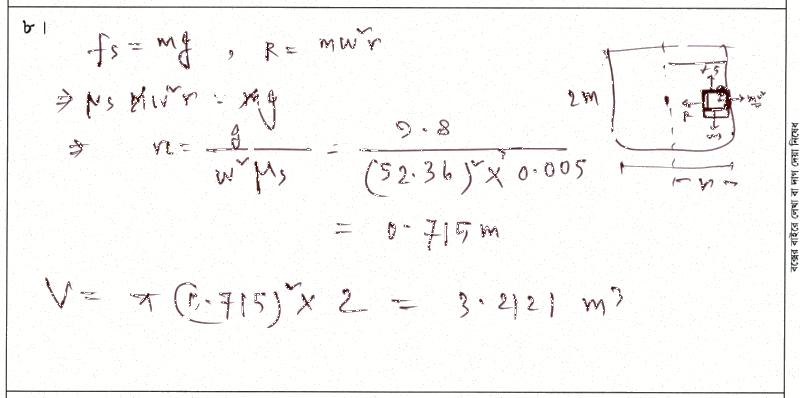 ৮।
fs = mg , R = mω²r
⇒ μs mω²r = mg
⇒ r = g / ω² μs = 9.8 / (52.36)² × 0.005
= 0.715 m
V = π (0.715)² × 2 = 3.2121 m³
2m
fs
R
mg
r
বক্সের বাইরে লেখা বা দাগ দেয়া নিষেধ